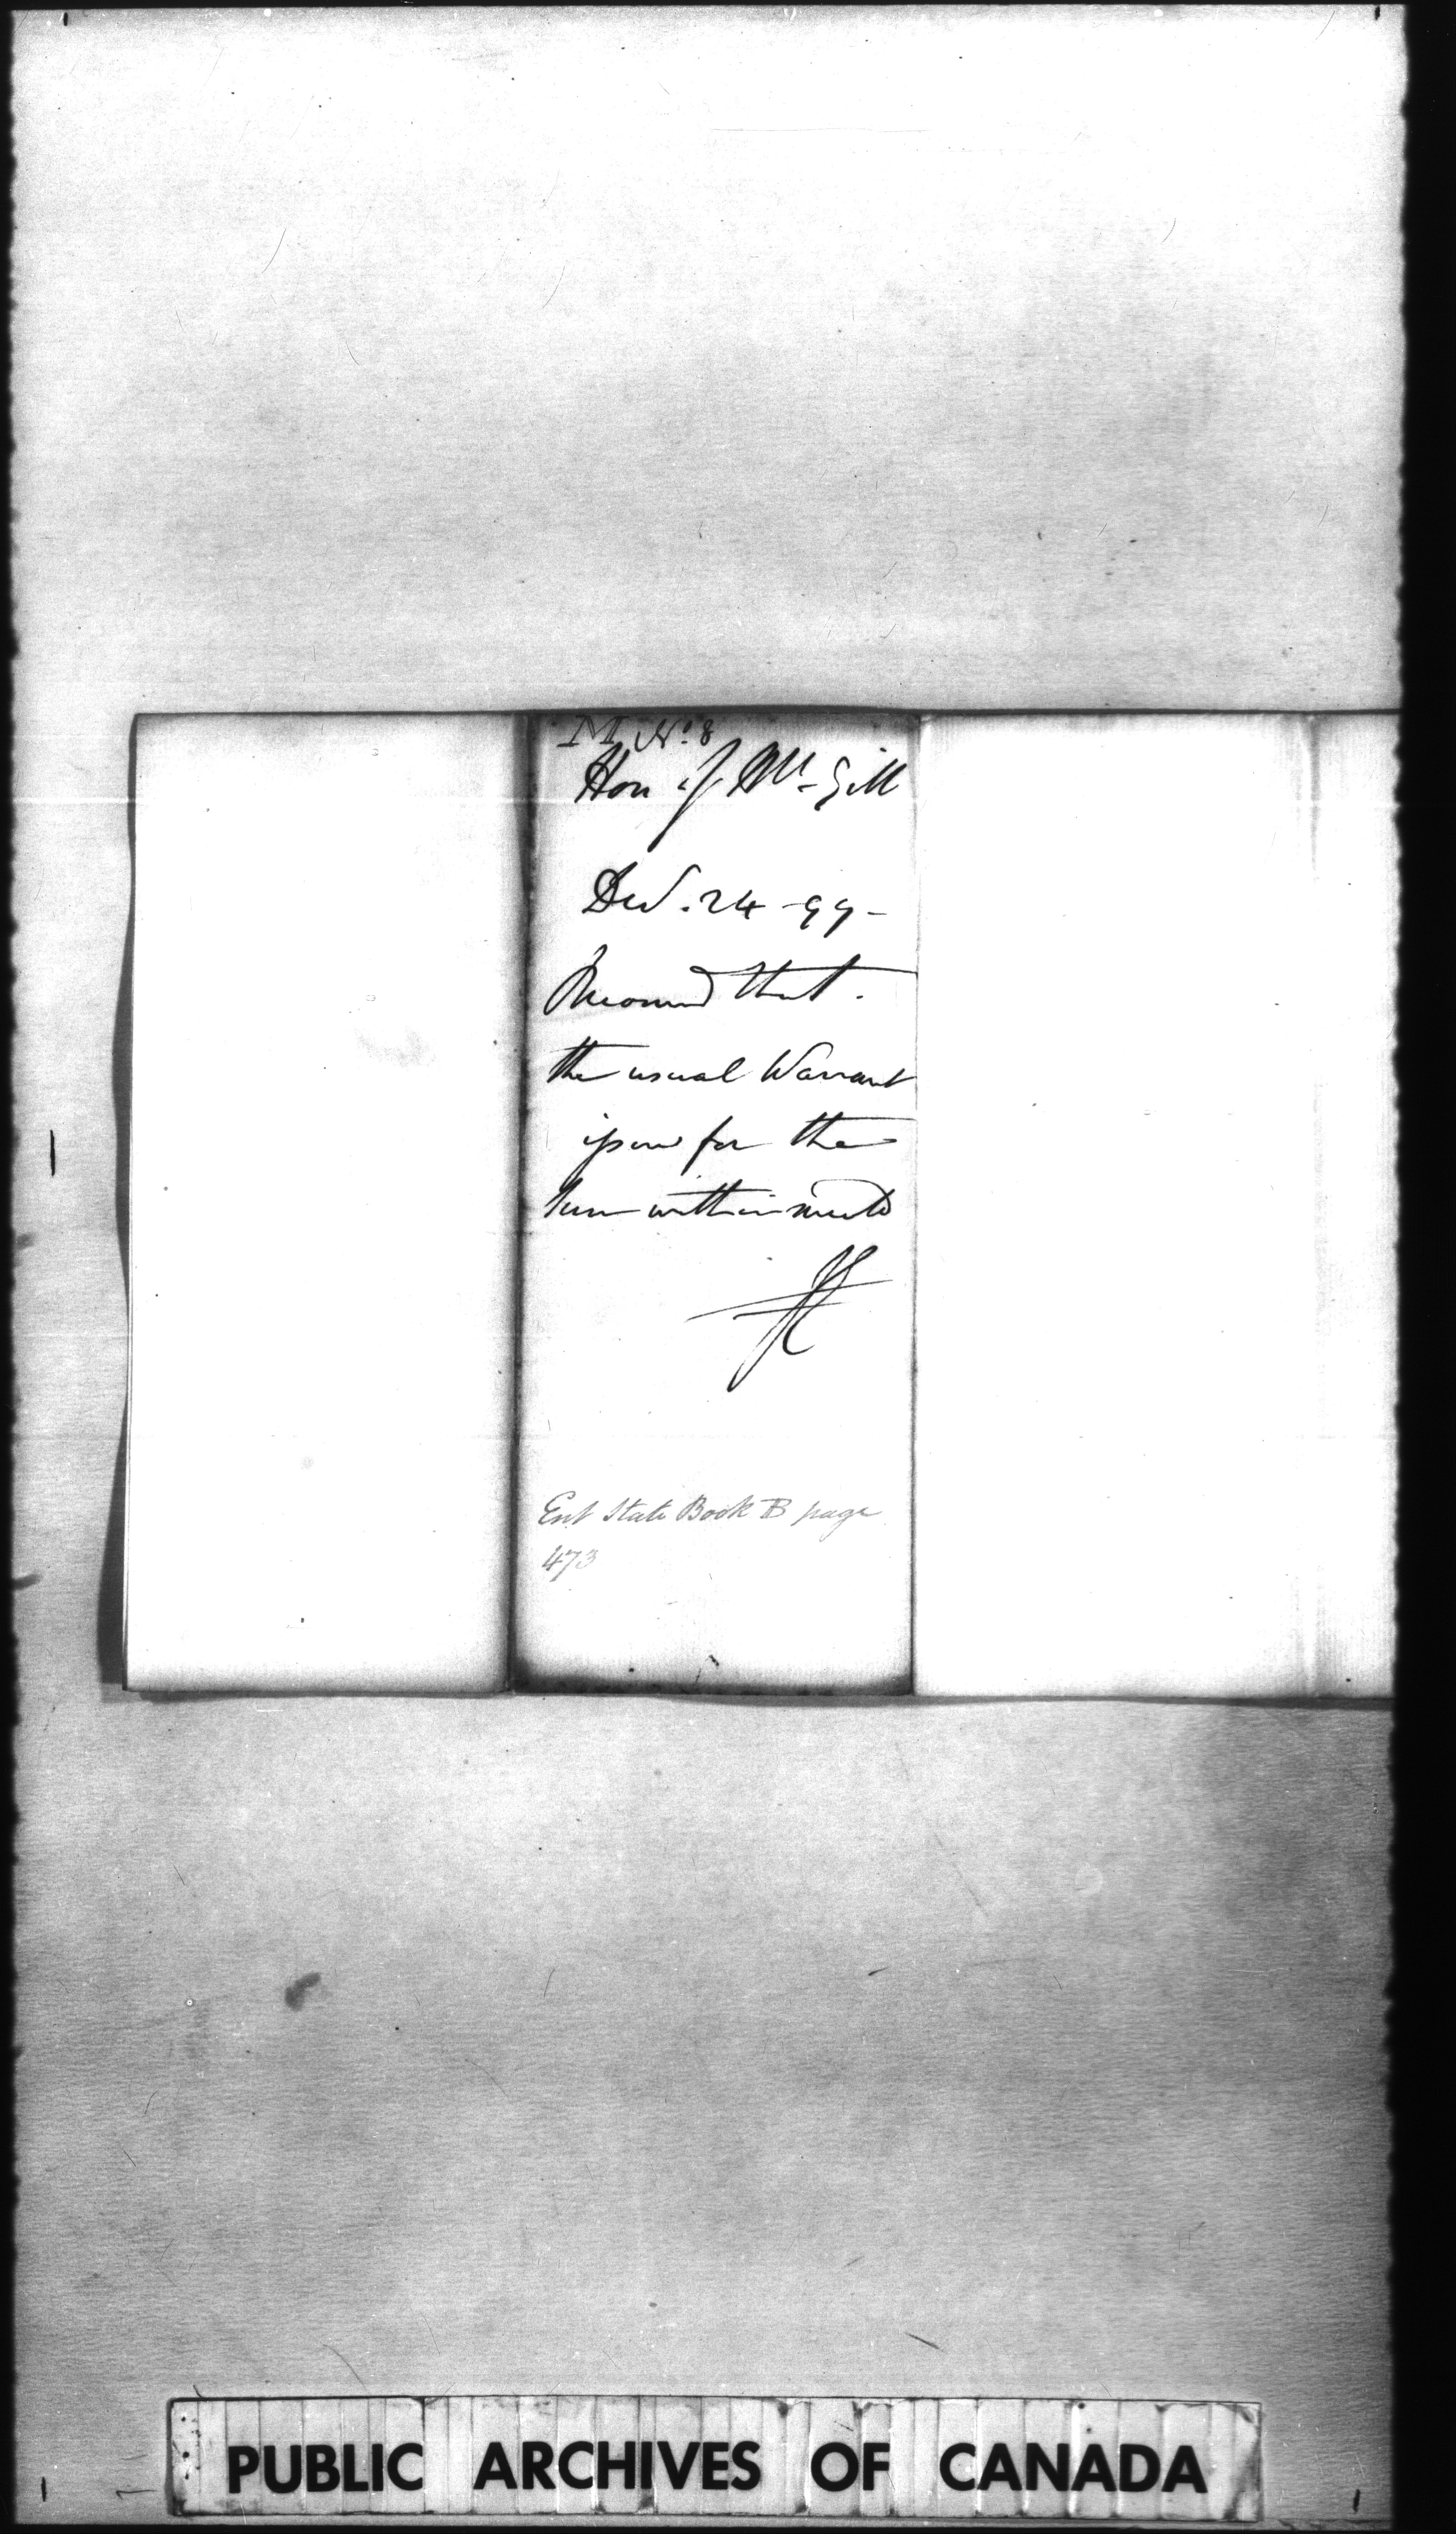 M No. 8
Hon. J McGill
Decr. 24 - 99 -
Recomd that
the usual Warrant
issue for the
sum within
Ent State Book B page
473
PUBLIC ARCHIVES OF CANADA